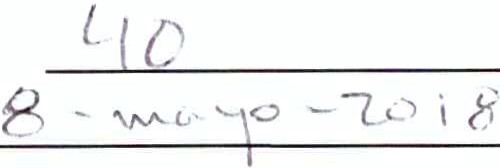 40
8-mayo-2018